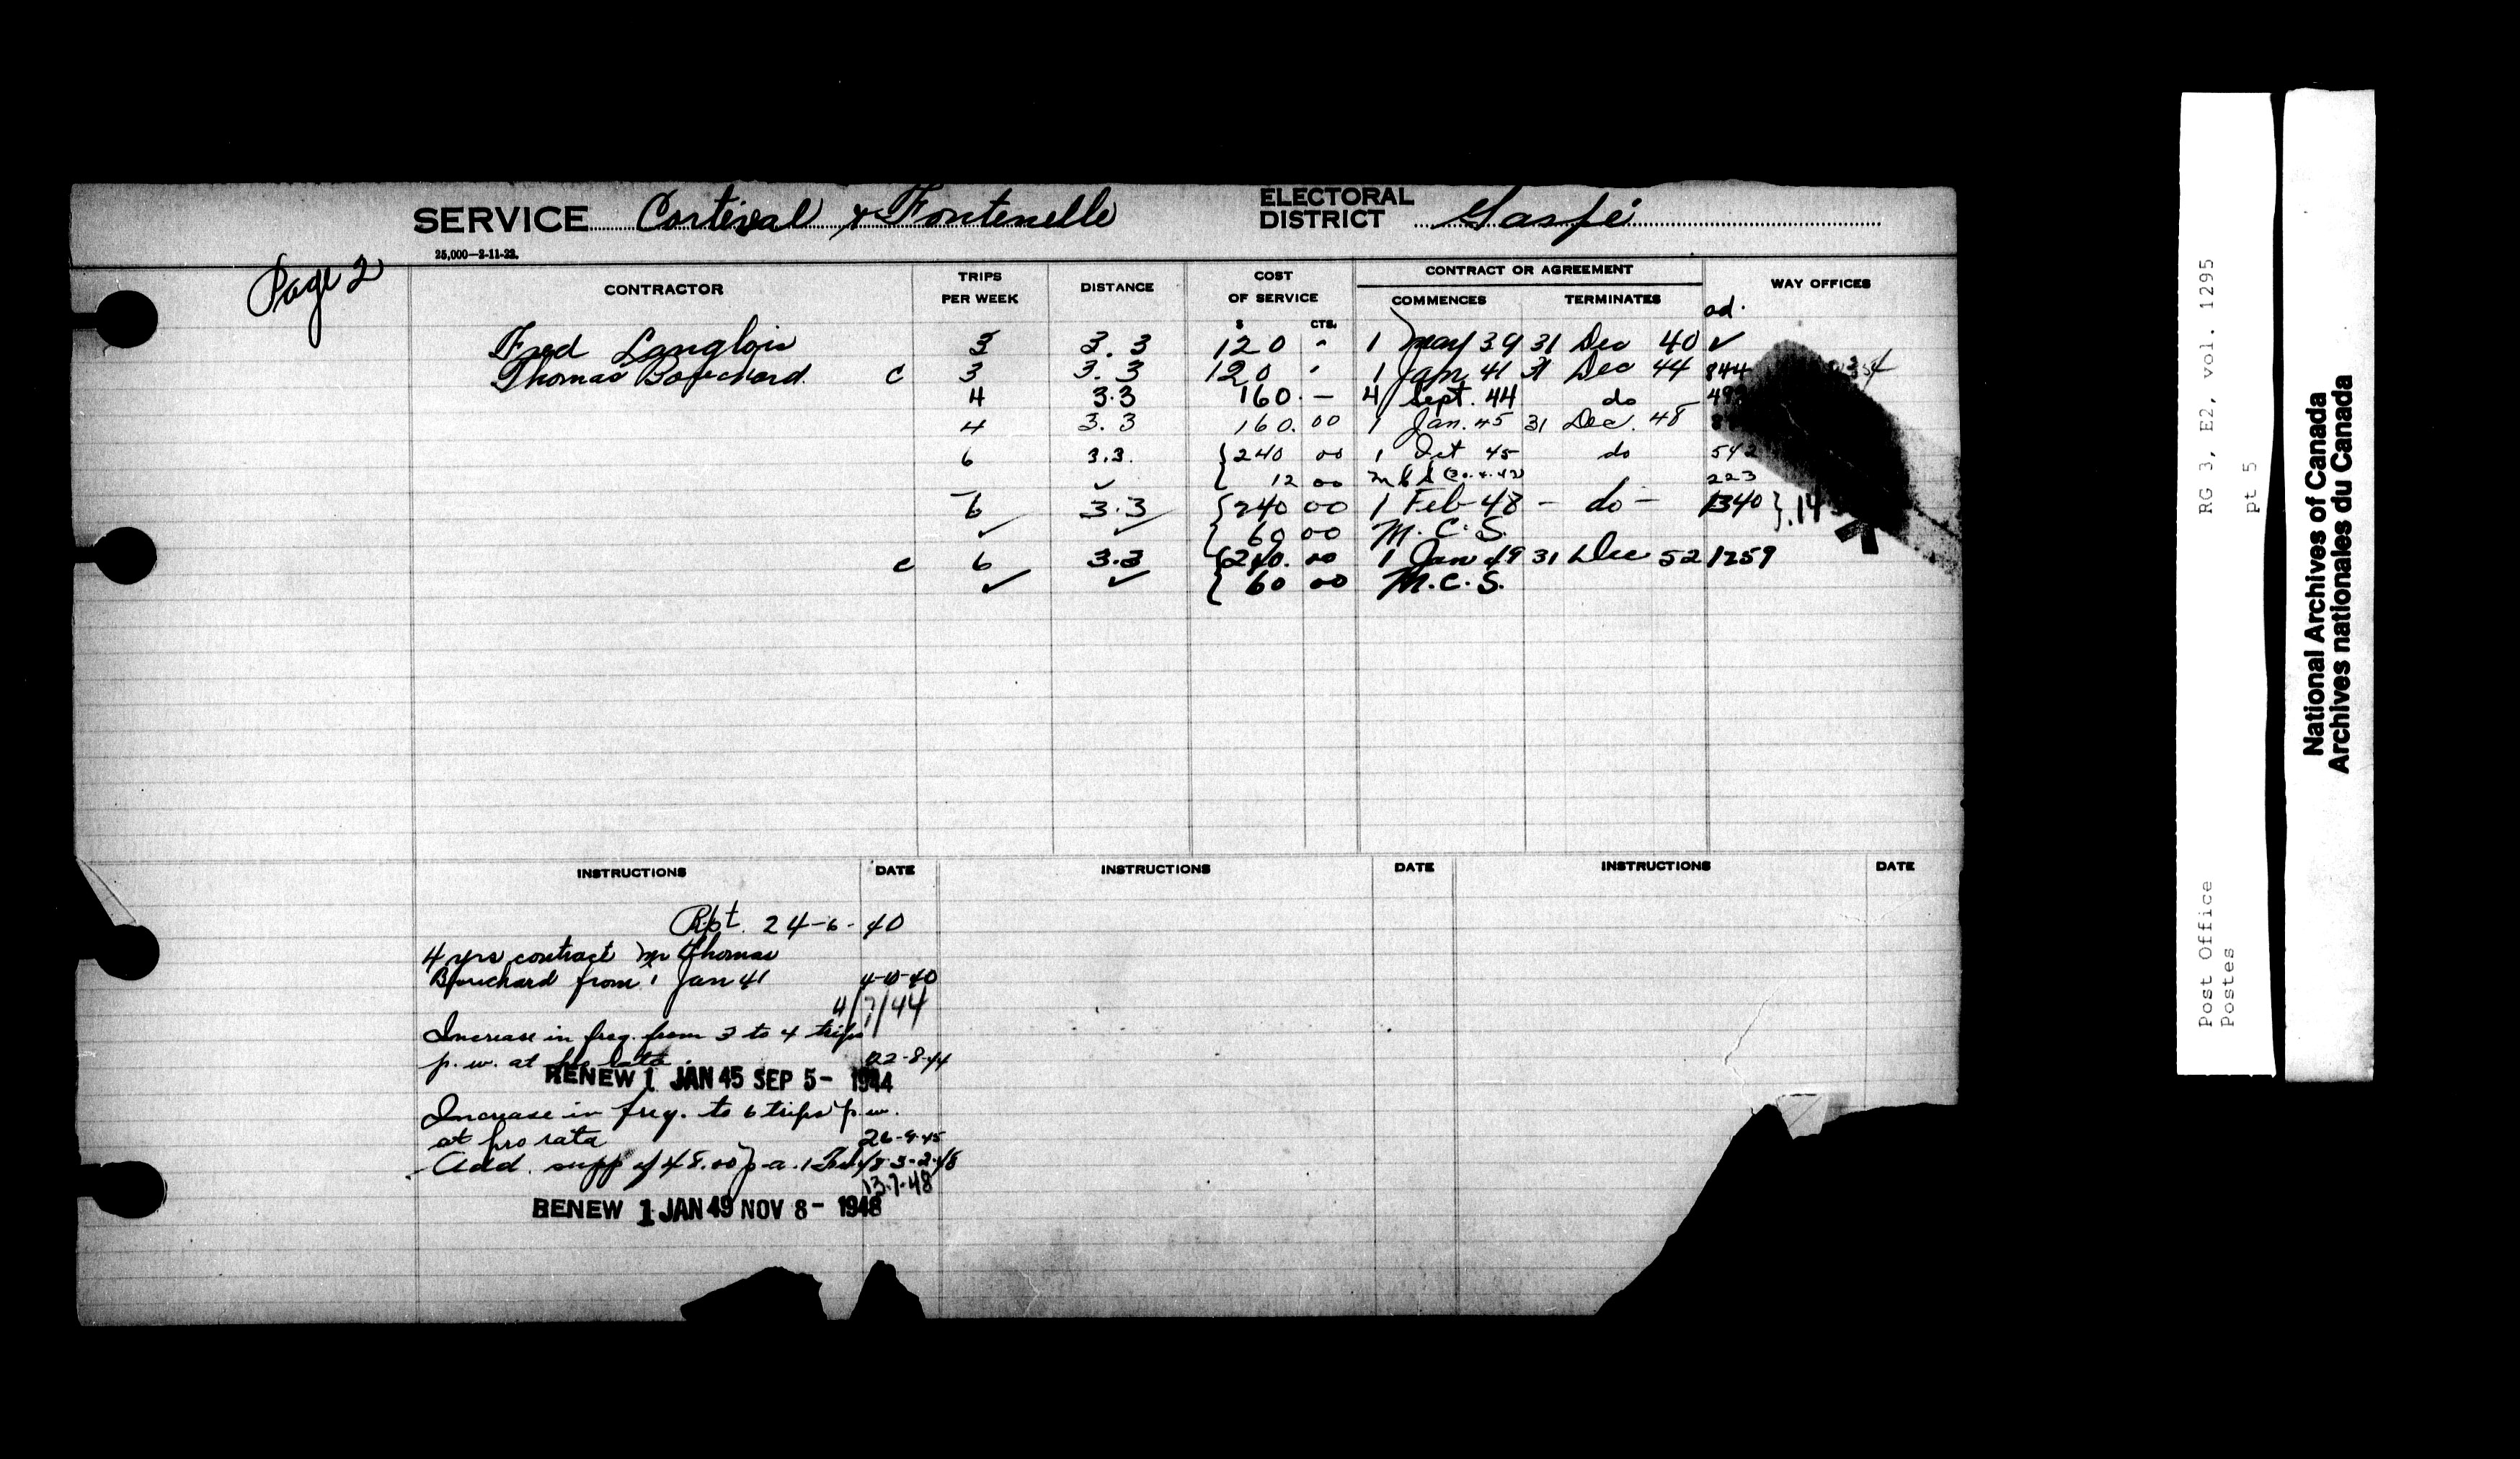 SERVICE Cortereal & Fontenelle ELECTORAL DISTRICT Gaspé
25,000—2-11-32.
Page 2
CONTRACTOR TRIPS PER WEEK DISTANCE COST OF SERVICE CONTRACT OR AGREEMENT WAY OFFICES
COMMENCES TERMINATES
$ CTS. ad.
Fred Langlois 3 3.3 120 " 1 May 39 31 Dec 40 ✓
Thomas Bouchard. c 3 3.3 120 " 1 Jan 41 31 Dec 44 844
4 3.3 160. — 4 Sept. 44 do
4 3.3 160.00 1 Jan. 45 31 Dec. 48
6 3.3. {240 00 1 Oct 45 do 542
✓ {12 00 223
6 3.3 {240 00 1 Feb 48 - do - 1340 }
✓ ✓ {60 00 M.C.S.
c 6 3.3 {240. 00 1 Jan 49 31 Dec 52 1259
✓ ✓ {60 00 M.C.S.
INSTRUCTIONS DATE INSTRUCTIONS DATE INSTRUCTIONS DATE
Rpt. 24-6-40
4 yrs contract Mr Thomas
Bouchard from 1 Jan 41 4-10-40
4/7/44
Increase in freq. from 3 to 4 trips
p.w. at pro rata. 22-8-44
RENEW 1 JAN 45 SEP 5- 1944
Increase in freq. to 6 trips p.w.
at pro rata 26-9-45
Add. supp of 48.00 p.a. 1 Feb/48 3-2-48
13.7.48
RENEW 1 JAN 49 NOV 8- 1948
RG 3, E2, vol. 1295
pt 5
Post Office
Postes
National Archives of Canada
Archives nationales du Canada